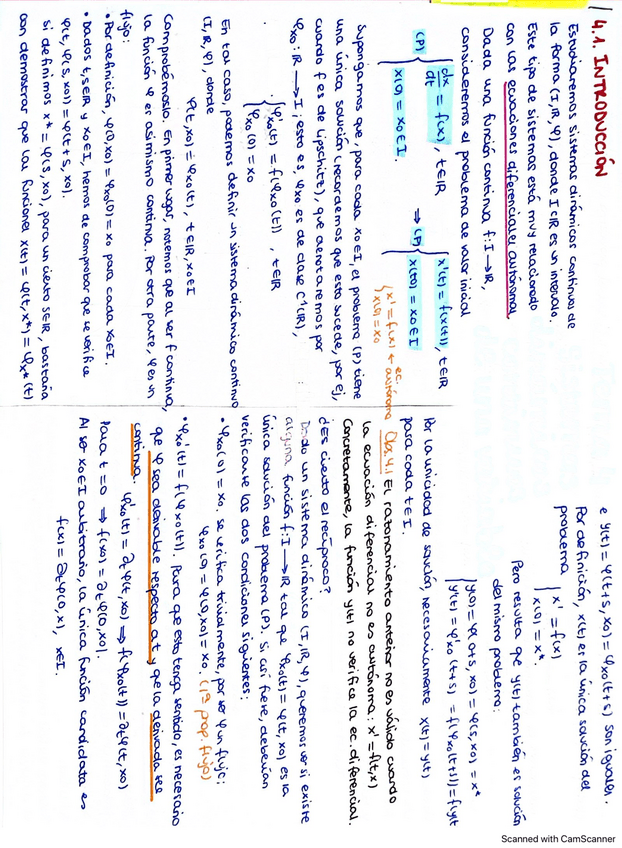 4.1. INTRODUCCIÓN
Estudiaremos sistemas dinámicos continuos de
la forma (I, ℝ, φ), donde I⊂ℝ es un intervalo.
Este tipo de sistemas está muy relacionado
con las ecuaciones diferenciales autónomas.
Dada una función continua f: I → ℝ,
consideremos el problema de valor inicial
(P) { dx/dt = f(x), t∈ℝ
x(0) = x0 ∈ I.
→ (P) { x'(t) = f(x(t)), t∈ℝ
x(t0) = x0 ∈ I.
{ x' = f(x) ← ec. autónoma
x(0) = x0
Supongamos que, para cada x0∈I, el problema (P) tiene
una única solución (recordemos que esto sucede, por ej,
cuando f es de Lipschitz), que denotaremos por
φx0: ℝ → I; esto es, φx0 es de clase C¹(ℝ),
{ φ'x0(t) = f(φx0(t)), t∈ℝ
φx0(0) = x0
En tal caso, podemos definir un sistema dinámico continuo
(I, ℝ, φ), donde
φ(t, x0) = φx0(t), t∈ℝ, x0∈I
Comprobémoslo. En primer lugar, notemos que al ser f continua,
la función φ es asimismo continua. Por otra parte, φ es un
flujo:
• Por definición, φ(0, x0) = φx0(0) = x0 para cada x0∈I.
• Dados t, s∈ℝ y x0∈I, hemos de comprobar que se verifica
φ(t, φ(s, x0)) = φ(t+s, x0).
Si definimos x* = φ(s, x0), para un cierto s∈ℝ, bastaría
con demostrar que las funciones x(t) = φ(t, x*) = φx*(t)
e y(t) = φ(t+s, x0) = φx0(t+s) son iguales.
Por definición, x(t) es la única solución del
problema { x' = f(x)
x(0) = x*.
Pero resulta que y(t) también es solución
del mismo problema:
{ y(0) = φ(0+s, x0) = φ(s, x0) = x*
y'(t) = φ'x0(t+s) = f(φx0(t+s)) = f(y(t
Por la unicidad de solución, necesariamente x(t) = y(t)
para cada t∈I.
Obs. 4.1 El razonamiento anterior no es válido cuando
la ecuación diferencial no es autónoma: x' = f(t, x)
Concretamente, la función y(t) no verifica la ec. diferencial.
¿Es cierto el recíproco?
Dado un sistema dinámico (I, ℝ, φ), queremos ver si existe
alguna función f: I → ℝ tal que φx0(t) = φ(t, x0) es la
única solución del problema (P). Si así fuere, deberían
verificarse las dos condiciones siguientes:
• φx0(0) = x0, se verifica trivialmente, por ser φ un flujo:
φx0(0) = φ(0, x0) = x0. (1ª prop. flujo)
• φx0'(t) = f(φx0(t)). Para que esto tenga sentido, es necesario
que φ sea derivable respecto a t y que la derivada sea
continua. φ'x0(t) = ∂tφ(t, x0) ⇒ f(φx0(t)) = ∂tφ(t, x0)
Para t = 0 ⇒ f(x0) = ∂tφ(0, x0).
Al ser x0∈I arbitrario, la única función candidata es
f(x) = ∂tφ(0, x), x∈I.
Scanned with CamScanner